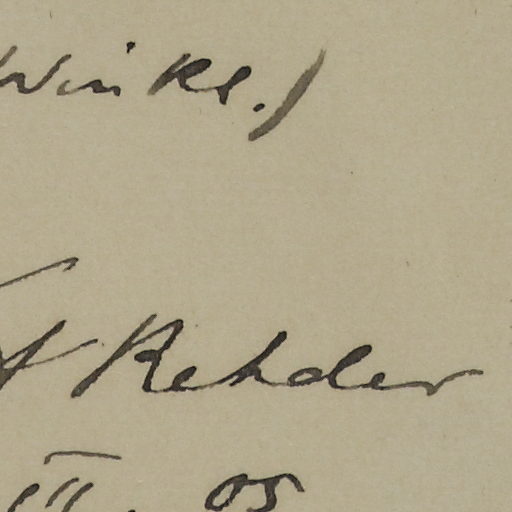 Winkl.)
Rehder
05